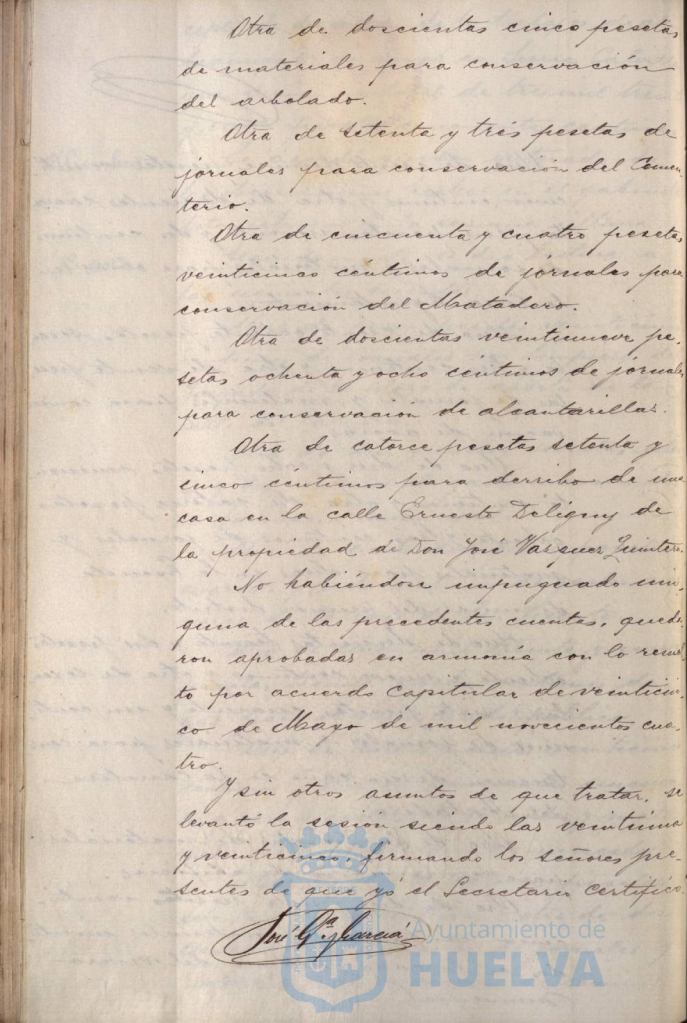 Otra de doscientas cinco pesetas
de materiales para conservación
del arbolado.
Otra de setenta y trés pesetas de
jornales para conservación del Cemen-
terio.
Otra de cincuenta y cuatro pesetas
veinticinco céntimos de jornales para
conservación del Matadero.
Otra de doscientas veintinueve pe-
setas ochenta y ocho céntimos de jornales
para conservación de alcantarillas.
Otra de catorce pesetas setenta y
cinco céntimos para derribo de una
casa en la calle Ernesto Deligny de
la propiedad de Don José Vazquez Quintero.
No habiéndose impugnado nin-
guna de las precedentes cuentas, queda-
ron aprobadas en armonía con lo resuel-
to por acuerdo capitular de veinticin-
co de Mayo de mil novecientos cua-
tro.
Y sin otros asuntos de que tratar, se
levantó la sesión siendo las veintiuna
y veinticinco, firmando los señores pre-
sentes de que yó el Secretario certifico.
José Gª García
Ayuntamiento de
HUELVA